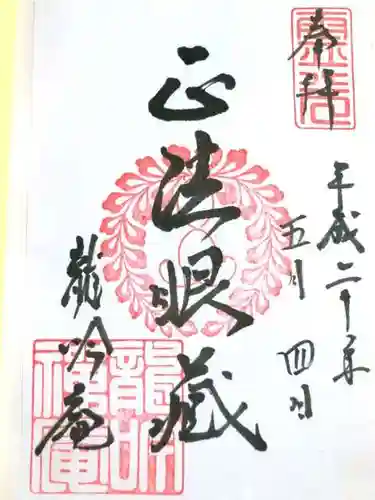 奉拝
平成二十年
五月四日
正法眼蔵
龍吟庵